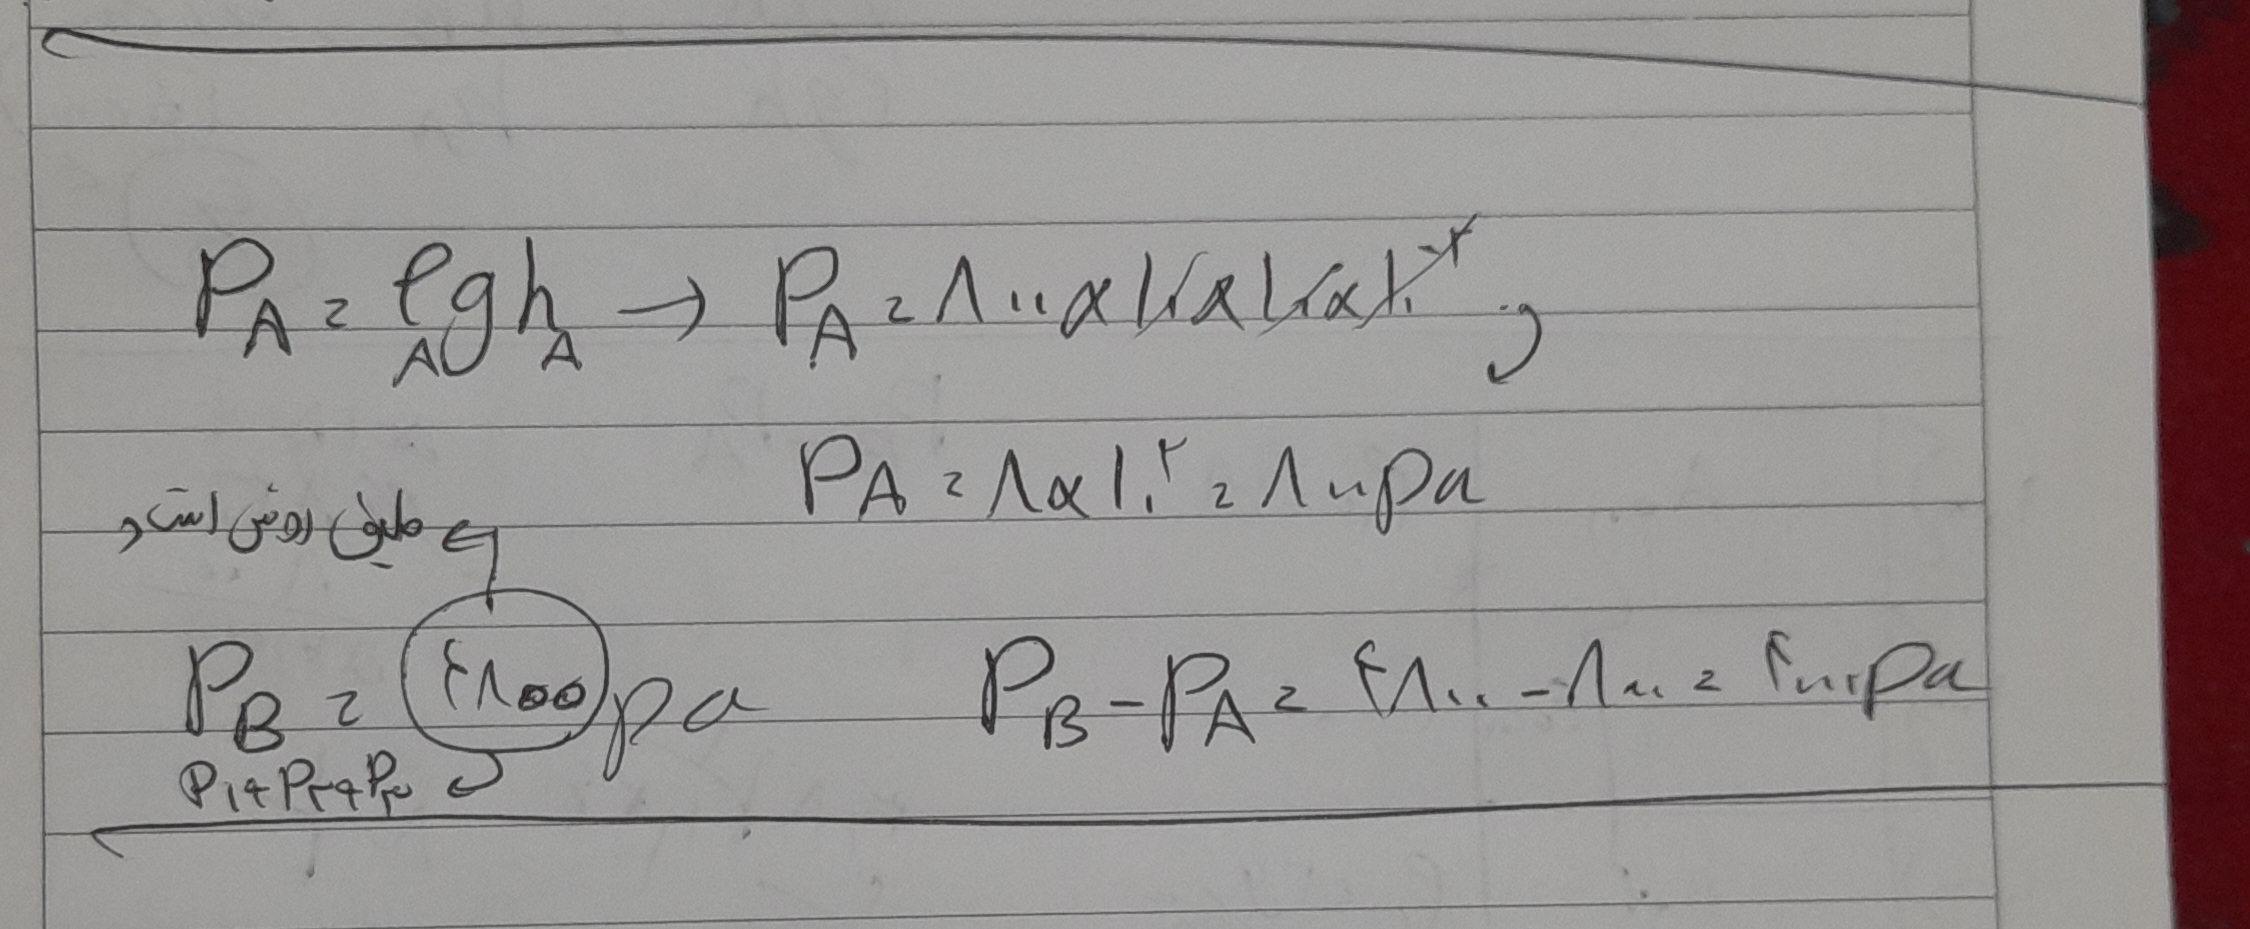 P_A = ρ_A g h_A → P_A = ۸۰۰ × ۱۰ × ۱۰ × ۱۰^-۲ ج
P_A = ۸ × ۱۰^۲ = ۸۰۰ pa
طبق روش است و
P_B = ۴۸۰۰ pa P_B - P_A = ۴۸۰۰ - ۸۰۰ = ۴۰۰۰ pa
P_۱ + P_۲ + P_۳